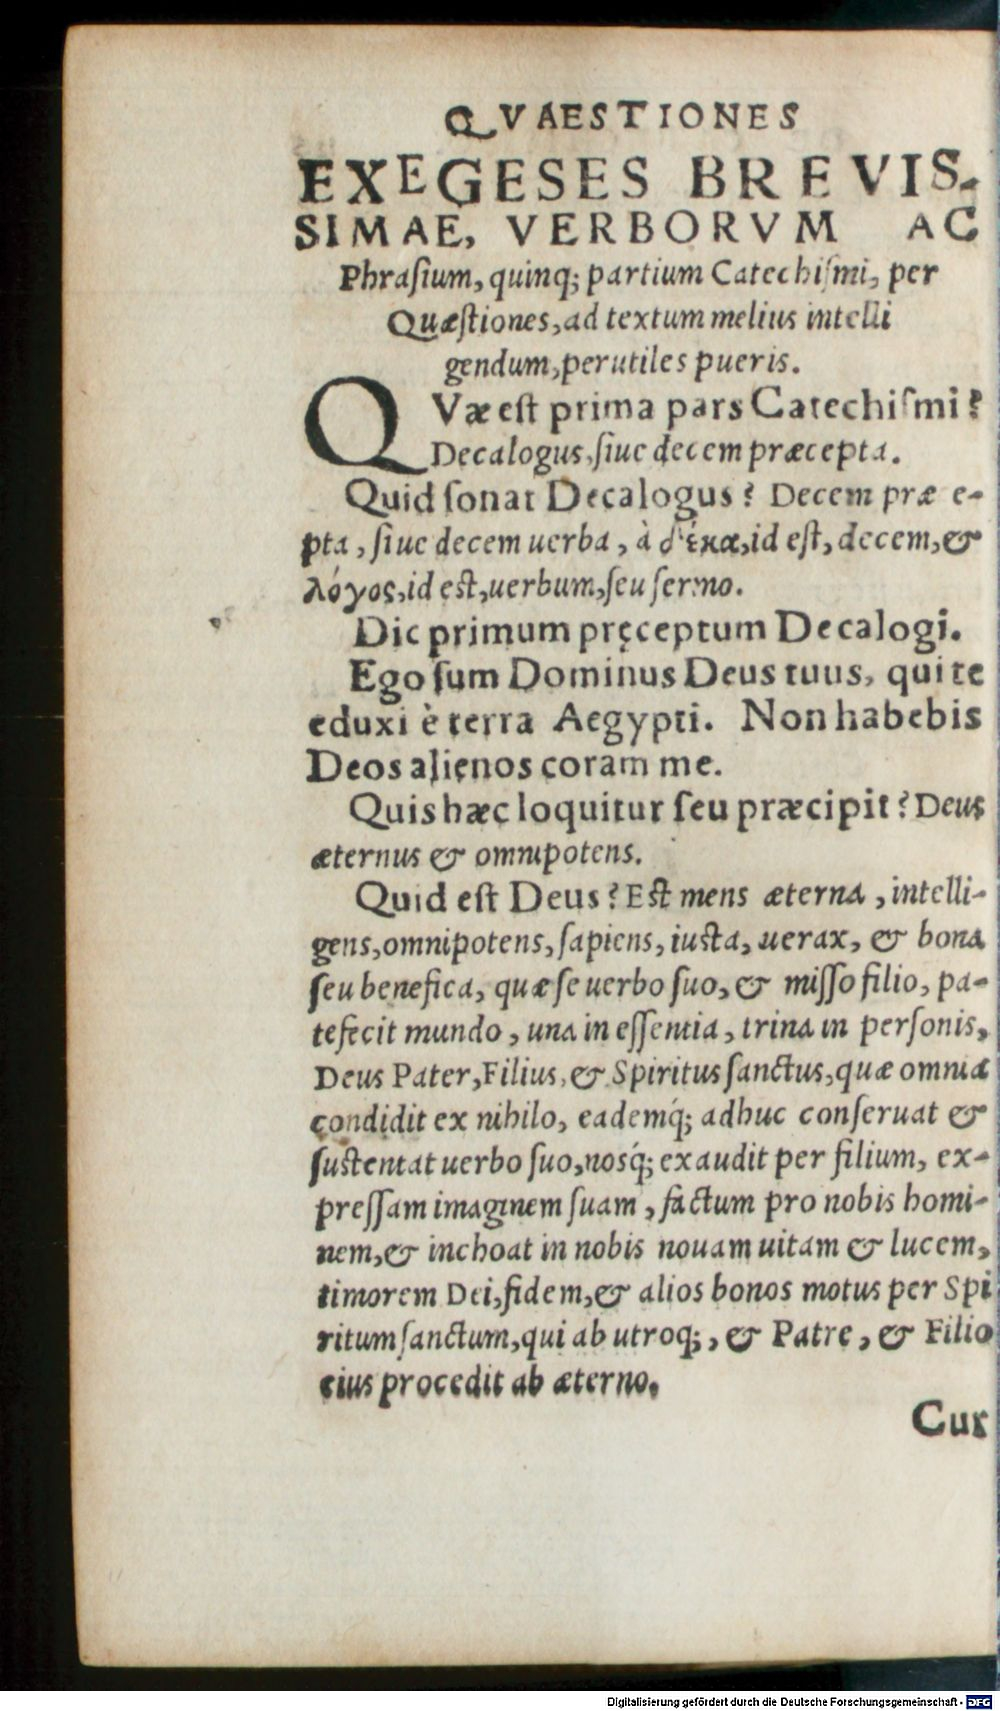 QVAESTIONES
EXEGESES BREVIS-
SIMAE, VERBORVM AC
Phraſium, quinq; partium Catechiſmi, per
Quæſtiones, ad textum melius intelli
gendum, perutiles pueris.
QVæ eſt prima pars Catechiſmi?
Decalogus, ſiue decem præcepta.
Quid ſonat Decalogus? Decem præ e-
pta, ſiue decem uerba, à δέκα, id eſt, decem, &
λόγος, id eſt, uerbum, ſeu ſermo.
Dic primum pręceptum Decalogi.
Ego ſum Dominus Deus tuus, qui te
eduxi è terra Aegypti. Non habebis
Deos alienos coram me.
Quis hæc loquitur ſeu præcipit? Deus
æternus & omnipotens.
Quid eſt Deus? Eſt mens æterna, intelli-
gens, omnipotens, ſapiens, iuſta, uerax, & bona
ſeu benefica, quæ ſe uerbo ſuo, & miſſo filio, pa-
tefecit mundo, una in eſſentia, trina in perſonis,
Deus Pater, Filius, & Spiritus ſanctus, quæ omnia
condidit ex nihilo, eademq́; adhuc conſeruat &
ſuſtentat uerbo ſuo, nosq́; exaudit per filium, ex-
preſſam imaginem ſuam, factum pro nobis homi-
nem, & inchoat in nobis nouam uitam & lucem,
timorem Dei, fidem, & alios bonos motus per Spi
ritum ſanctum, qui ab utroq;, & Patre, & Filio
eius procedit ab æterno.
Cur
Digitalisierung gefördert durch die Deutsche Forschungsgemeinschaft - DFG